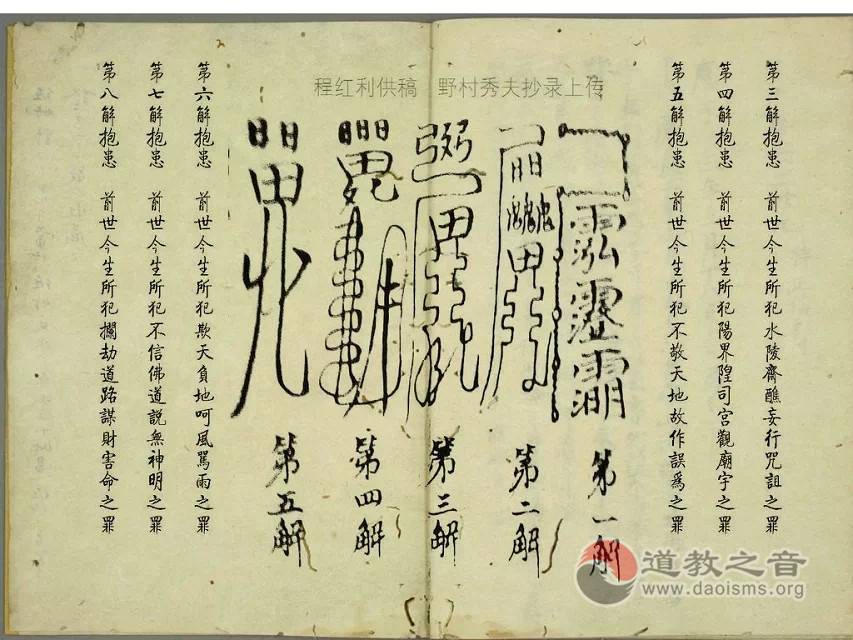 程红利供稿 野村秀夫抄录上传
第三解抱患 前世今生所犯水陵齋醮妄行咒詛之罪
第四解抱患 前世今生所犯陽界隍司宮觀廟宇之罪
第五解抱患 前世今生所犯不敬天地故作誤為之罪
第一解
第二解
第三解
第四解
第五解
第六解抱患 前世今生所犯欺天負地呵風罵雨之罪
第七解抱患 前世今生所犯不信佛道説無神明之罪
第八解抱患 前世今生所犯攔劫道路謀財害命之罪
道教之音
www.daoisms.org